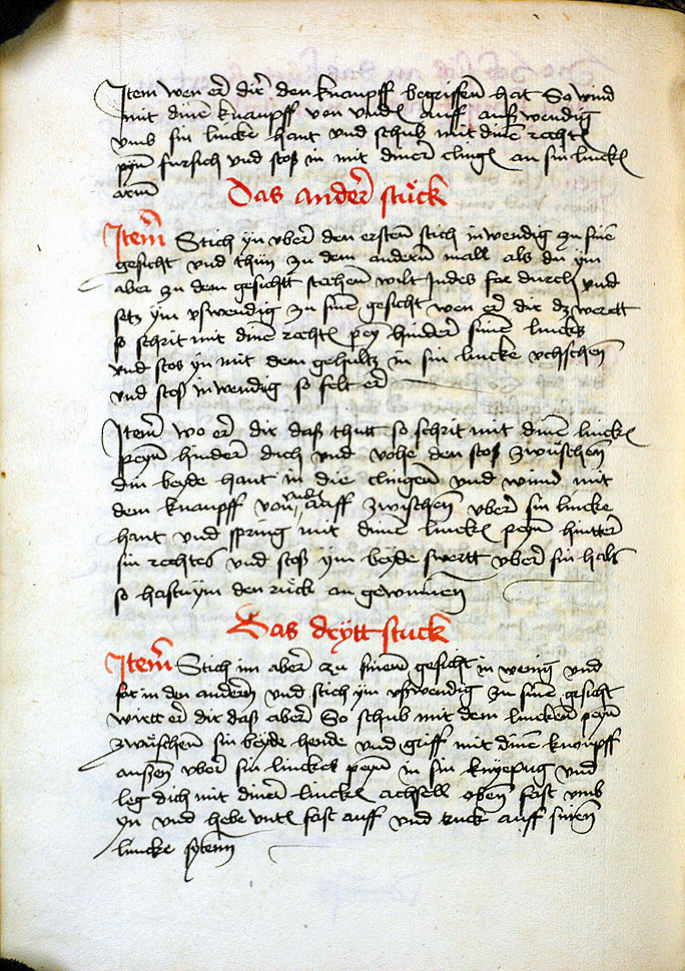 Item wen er dir den knaupff begriffen hat So wind
mit dinen knaupff von unden auff auß wendig
umb sin lincke hant und schub mit dinen rechten
peyn fürsich und stoß in mit diner clingen an sin lincken
arm
Das ander stück
Item Stich yn uber den ersten stich inwendig zu sine
gesicht und thün zu dem andern mall als du ym
aber zu dem gesichtt stechen wilt Indes far durch und
setz ym ußwendig zu sinem gesicht wen er dir dz werett
so schrit mit dinem rechten peyn hinder sinen lincks
und stos yn mit dem gehültz in sin lincke uchsschen
und stoß inwendig so felt er
Item wo er dir daß thutt so schrit mit dinem lincken
peyn hinder dich und vohe den stoß zwüschen
din beyde hant in die clingen und wind mit
dem knaupff von unden auff zwischen uber sin lincke
hant und spring mit dinem lincken peyn hintter
sin rechtes und stoß ym beyde swertt uber sin hals
so hastu ym den ruck an gewunnen
Das drytt stuck
Item Stich im aber zu sinem gesicht in wenig und
far in den anderen und stich ym ußwendig zu sinem gesicht
wirtt er dir daß aber So schub mit dem linckenn peyn
zwüschen sin beyde hende und griff mit dinem knöpff
aussen uber sin linckes peyn in sin knyepug und
leg dich mit diner lincken achsell oben fast umb
yn und hebe unten fast auff und truck auff sinen
lincke sytenn